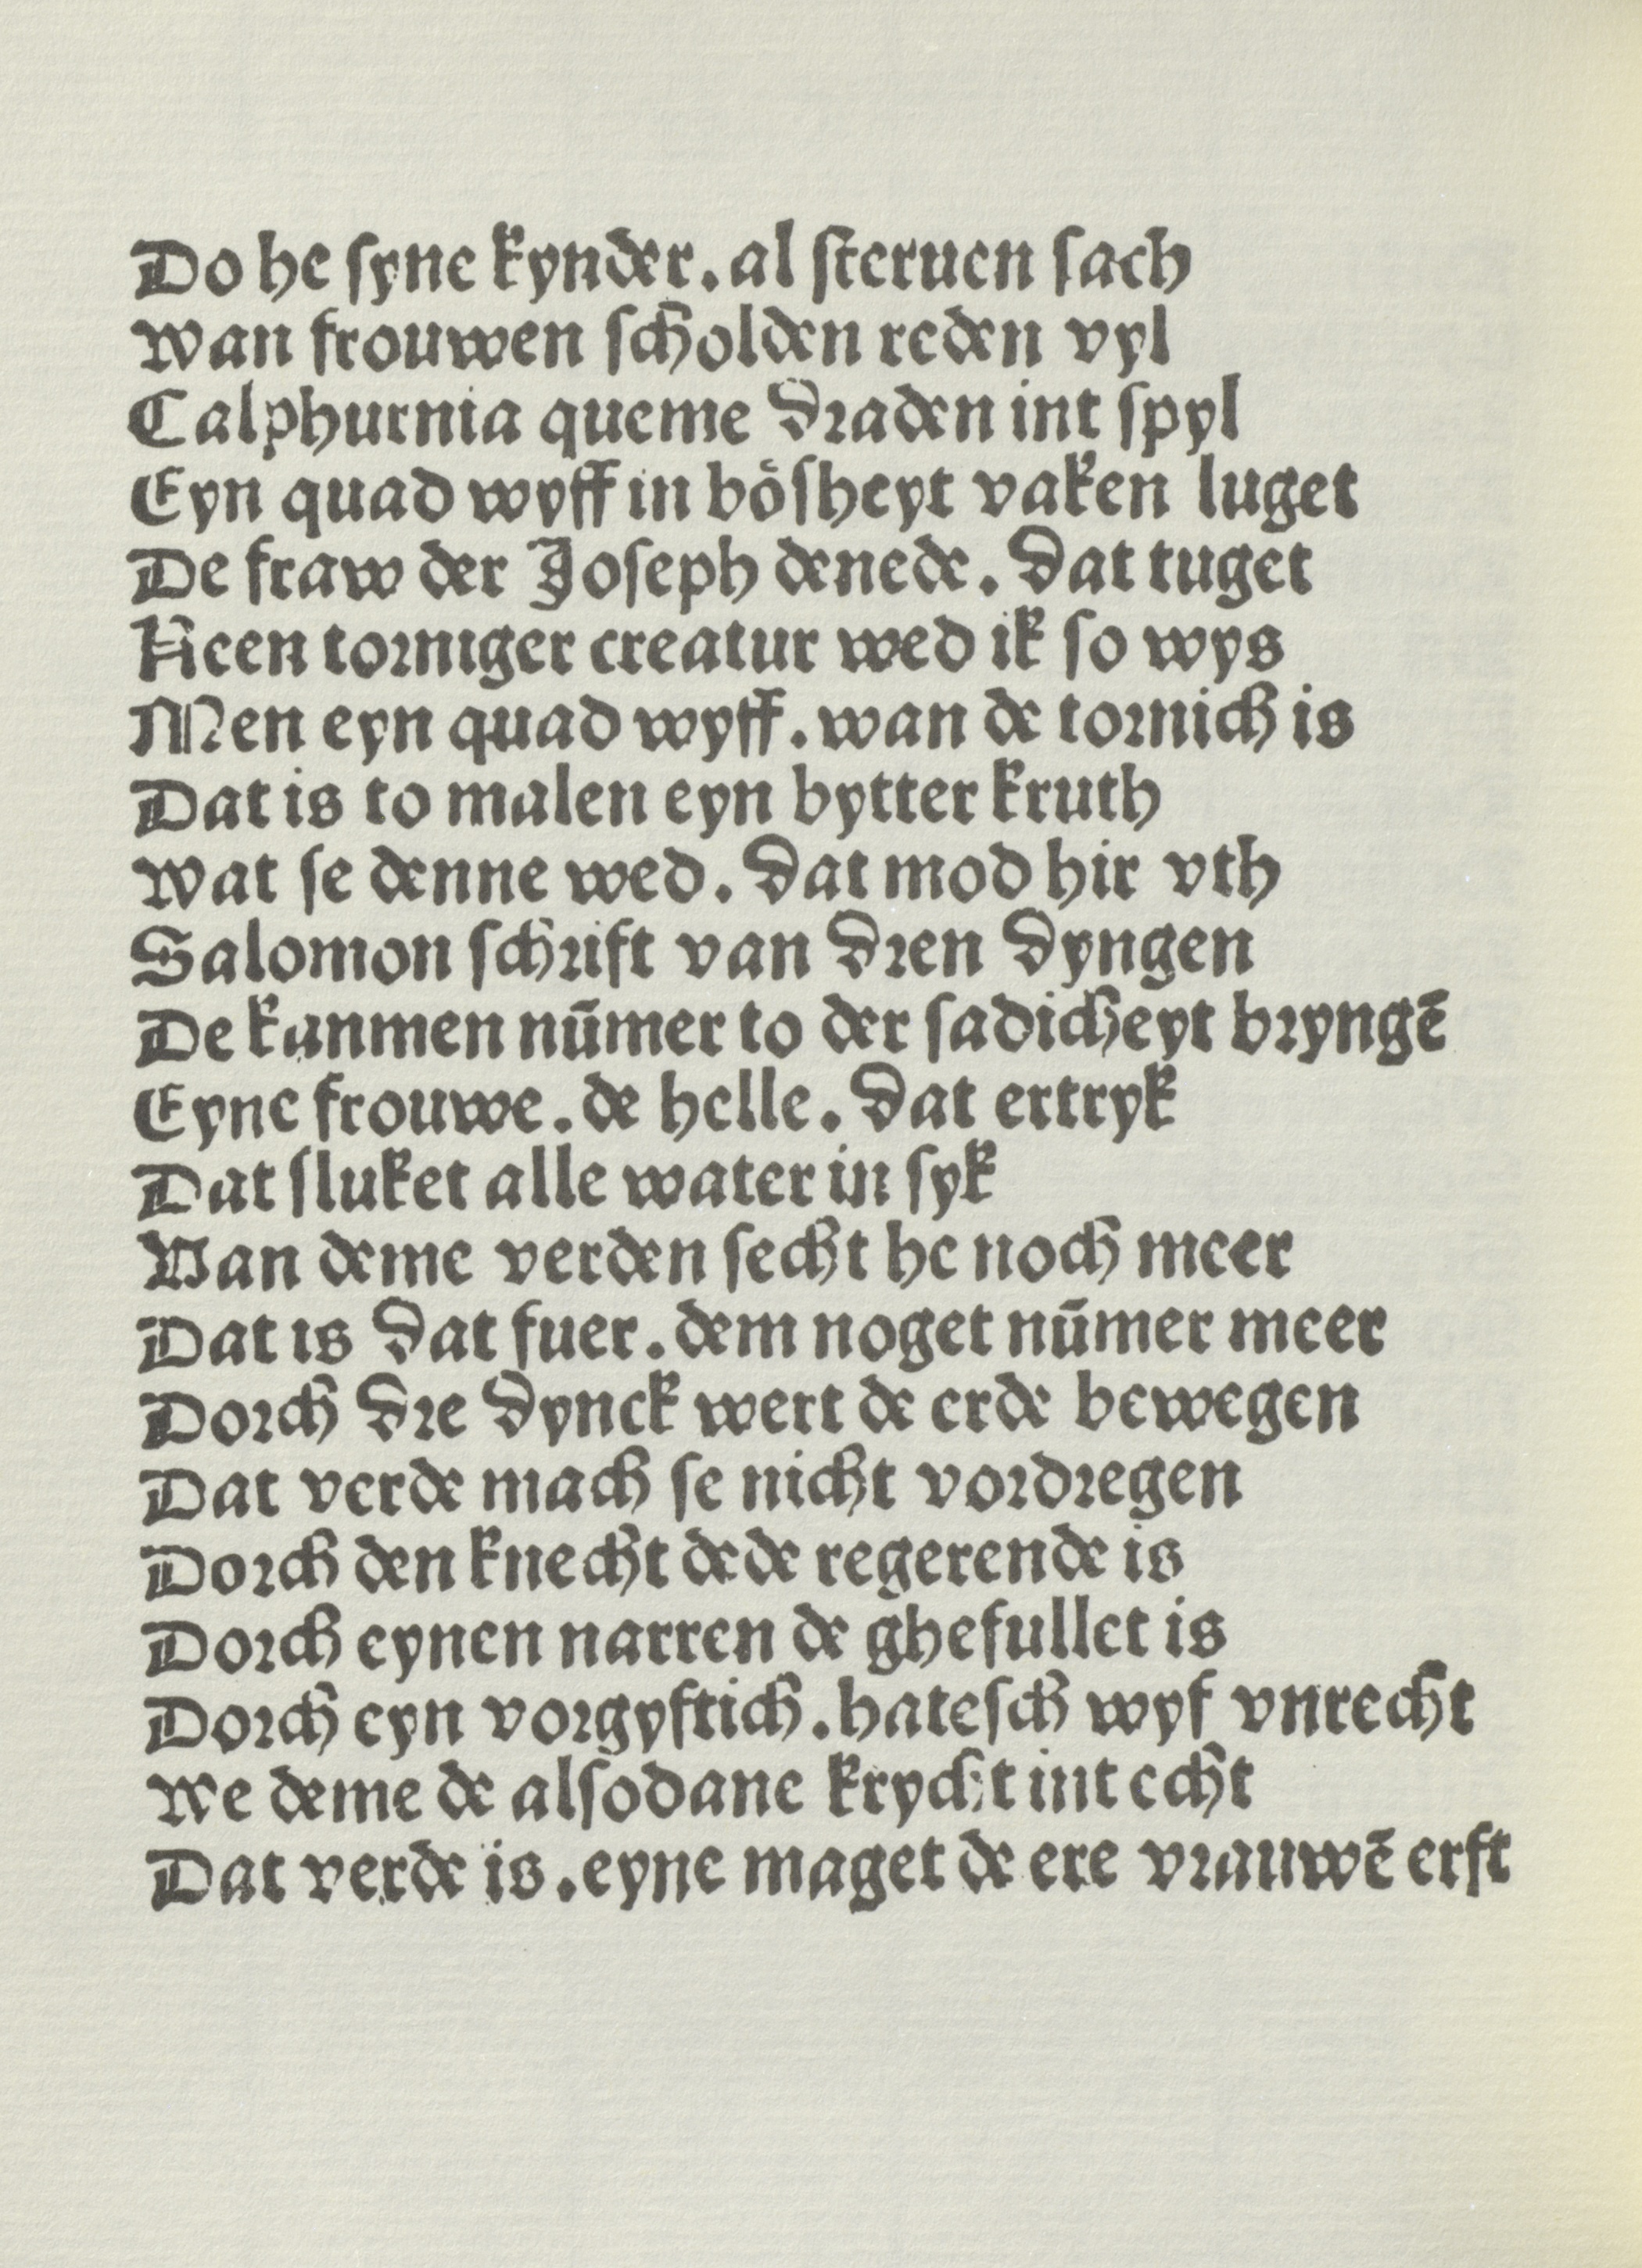 Do he syne kynder. al steruen sach
Wan frouwen scholden reden vyl
Calphurnia queme draden int spyl
Eyn quad wyff in boͤsheyt vaken luget
De fraw der Joseph denede. Dat tuget
Keen torniger creatur wed ik so wys
Men eyn quad wyff. wan de tornich is
Dat is to malen eyn bytter kruth
Wat se denne wed. Dat mod hir vth
Salomon schrift van dren dyngen
De kanmen nūmer to der sadicheyt bryngē
Eyne frouwe. de helle. Dat ertryk
Dat sluket alle water in syk
Van deme verden secht he noch meer
Dat is dat fuer. dem noget nūmer meer
Dorch dre dynck wert de erde bewegen
Dat verde mach se nicht vordregen
Dorch den knecht dede regerende is
Dorch eynen narren de ghefullet is
Dorch eyn vorgyftich. hatesch wyf vnrecht
We deme de alsodane krycht int echt
Dat verde is. eyne maget de ere vrauwē erft